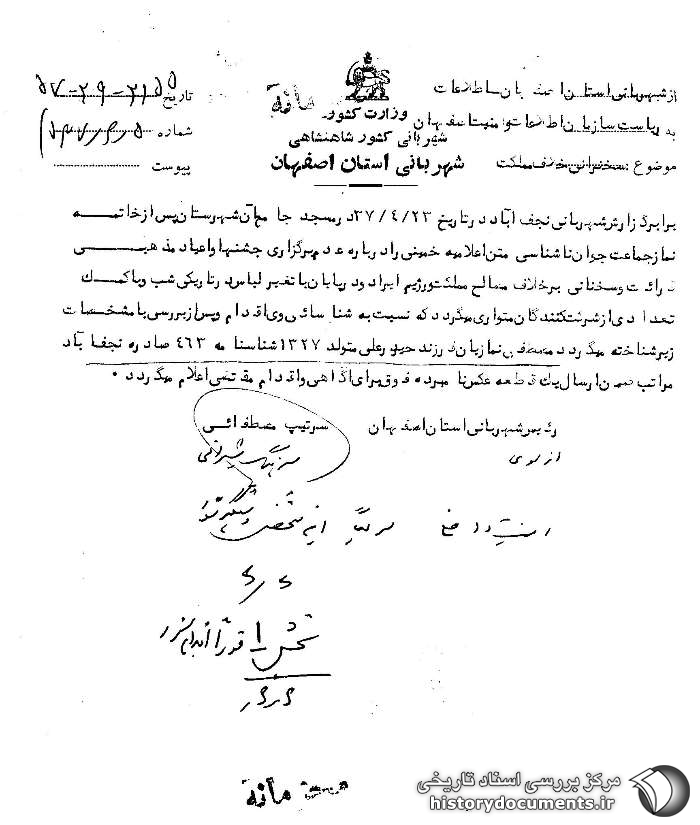 از شهربانی استان اصفهان اطلاعات
به ریاست سازمان اطلاعات و امنیت اصفهان
موضوع : سخنرانی خلاف مملکت
محرمانه
وزارت کشور
شهربانی کشور شاهنشاهی
شهربانی استان اصفهان
تاریخ
شماره
پیوست
برابر گزارش شهربانی نجف آباد در تاریخ ۳۷/۴/۲۳ در مسجد جامع آن شهرستان پس از خاتمه
نماز جماعت جوان ناشناسی متن اعلامیه خمینی را درباره عدم برگزاری جشنها و اعیاد مذهبی
قرائت و سخنانی برخلاف مصالح مملکت و رژیم ایراد و در پایان با تغییر لباس در تاریکی شب و با کمک
تعدادی از شرکت کنندگان متواری میگردد که نسبت به شناسائی وی اقدام و پس از بررسی با مشخصات
زیر شناخته میگردد مصطفی نمازیان فرزند حیدرعلی متولد ۱۳۲۷ شناسنامه ۴۶۳ صادره نجف آباد
مراتب ضمن ارسال یک قطعه عکس نامبرده فوق برای آگاهی و اقدام مقتضی اعلام میگردد .
رئیس شهربانی استان اصفهان سرتیپ مصطفائی
از سوی
این شخص دستگیر شود
فوراً اقدام
محرمانه
مرکز بررسی اسناد تاریخی
historydocuments.ir